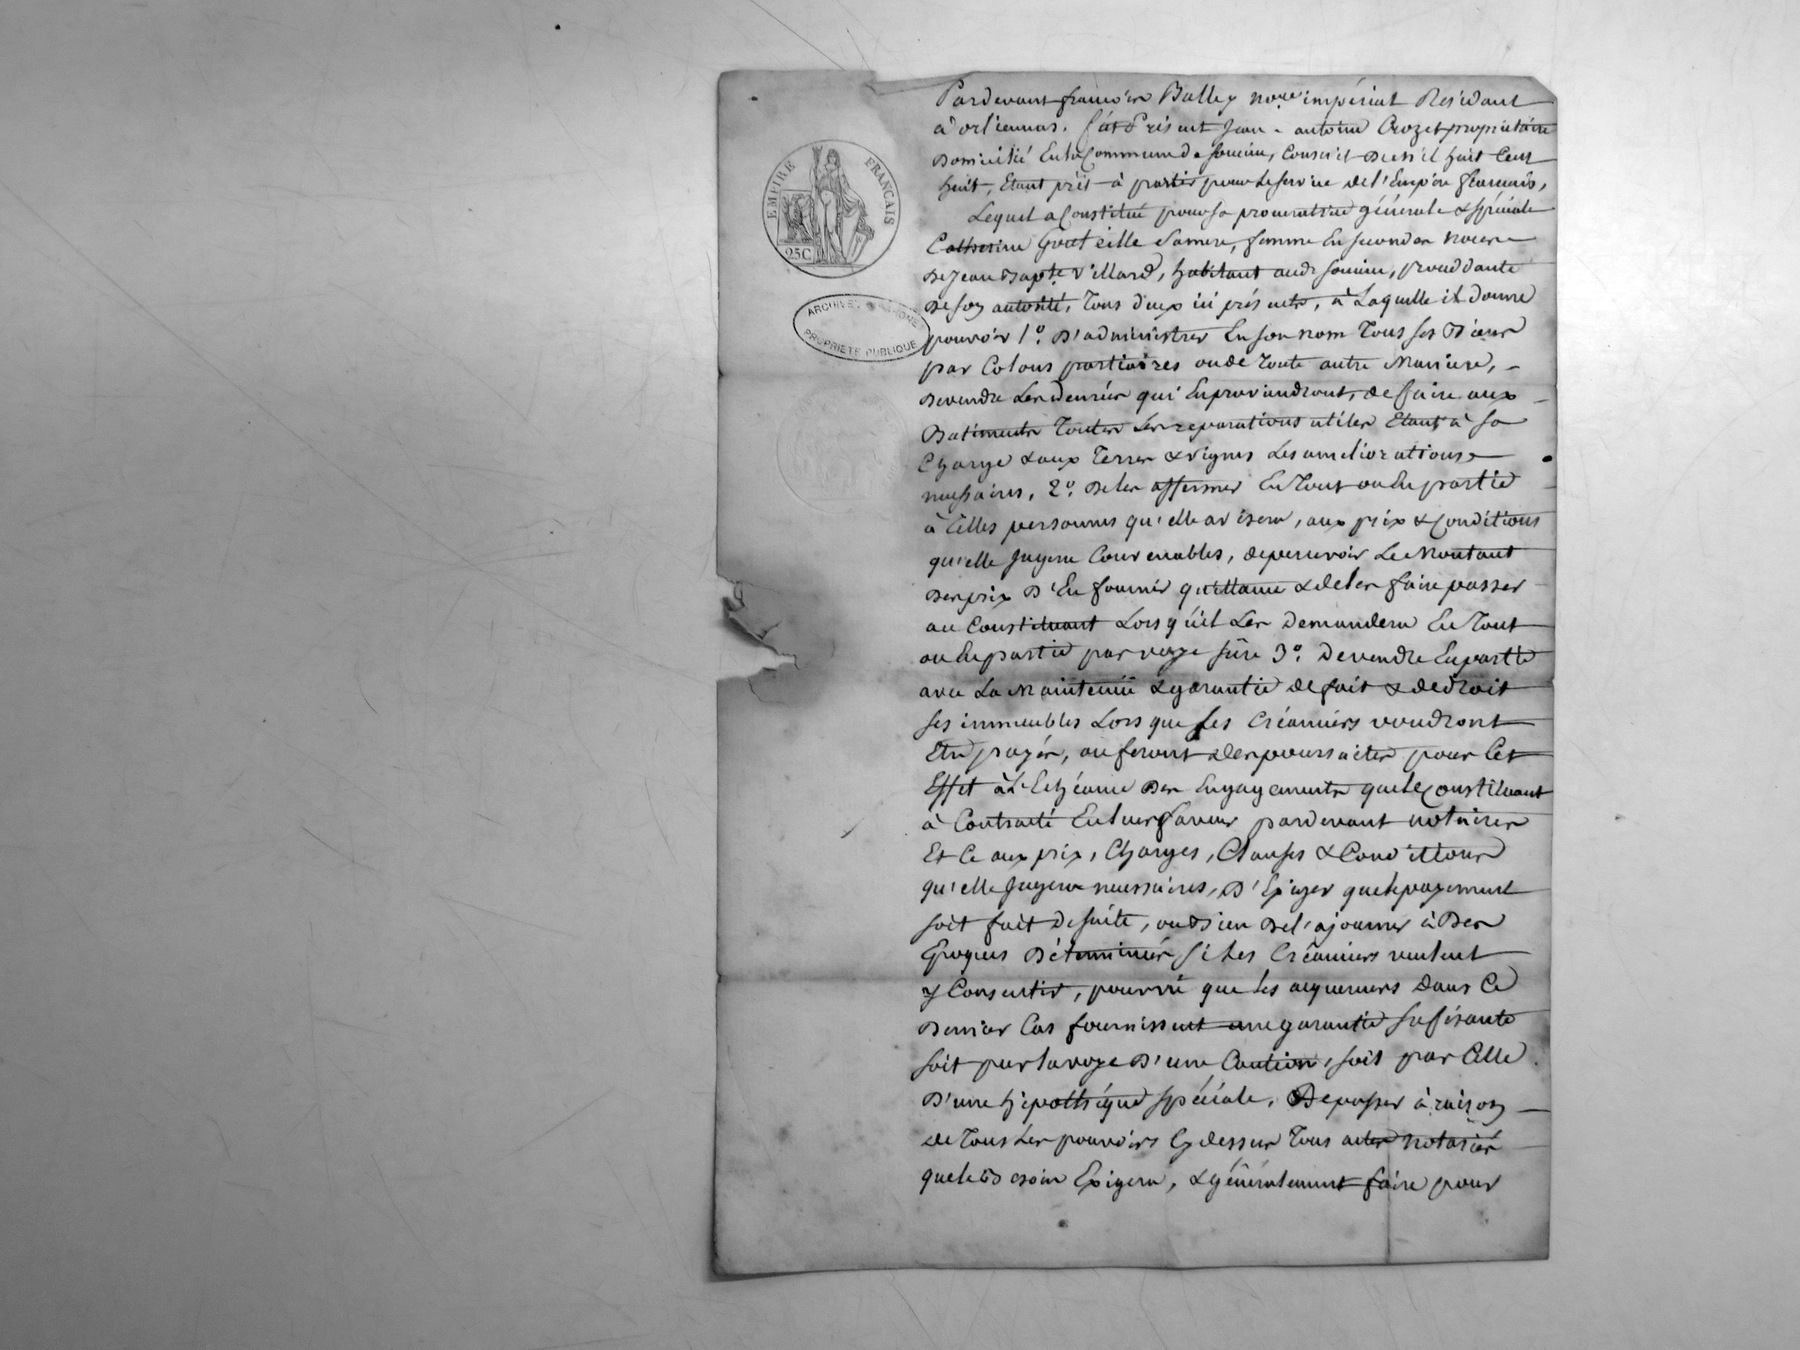 EMPIRE FRANÇAIS
25C
ARCHIVES RHONE
PROPRIÉTÉ PUBLIQUE
Pardevant françois Balley no.re impérial Résidant
à orliennas. fut Présent Jean-antoine Crozet propriétaire
Domicilié En la Commune de soucieu, Conscrit De mil huit Cent
huit, Etant prèt à partir pour Le service de l'Empire français,
Lequel a Constitué pour sa procuratrice générale & spéciale
Catherine sa mere, femme En secondes noces
De Jean Bapte Villard, habitant audt soucieu, procédante
De son autorité, Tous deux ici présents, à Laquelle il donne
pouvoir 1º. D'administrer En son nom Tous ses Biens
par Colons partiaires ou de Toute autre Maniere,
De vendre Les denrées qui En proviendront, de faire aux
Batiments Toutes Les reparations utiles Etant à sa
Charge & aux Terres & vignes Les ameliorations
necessaires, 2º. De les affermer En Tout ou En partie
à Celles personnes qu'elle avisera, aux prix & Conditions
qu'elle Jugera Convenables, de percevoir Le Montant
Des prix D'En fournir quittance & de les faire passer
au Constituant Lors qu'il Les Demandera En Tout
ou En partie par voye sûre 3º. De vendre En partie
avec La Maintenüe & garantie de fait & de droit
ses immeubles Lors que ses Créanciers voudront
Etre payés, ou feront des poursuites pour Cet
Effet à L'Echéance Des Engagements que le Constituant
à Contracté En leur faveur pardevant notaires
Et Ce aux prix, Charges, Clauses & Conditions
qu'elle Jugera necessaires, D'Exiger que le payement
soit fait De suite, ou Bien De l'ajourner à Des
Epoques Déterminées si Les Créanciers veulent
y Consentir, pourvû que les acquereurs Dans Ce
Dernier Cas fournissent une garantie suffisante
soit par la voye D'une Caution, soit par Celle
D'une hipothéque spéciale. De passer à raison
de Tous Les pouvoirs Cy dessus Tous actes notariés
que le Besoin Exigera, & généralement faire pour